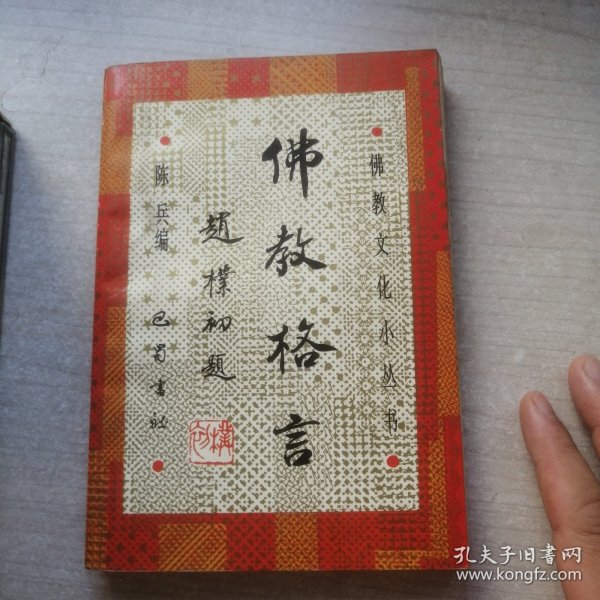 佛教文化小丛书
佛教格言
趙樸初題
樸初
陈兵编
巴蜀書社
孔夫子旧书网
www.kongfz.com